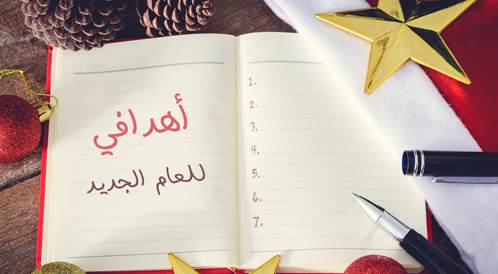 أهدافي
للعام الجديد
1.
2.
3.
4.
5.
6.
7.